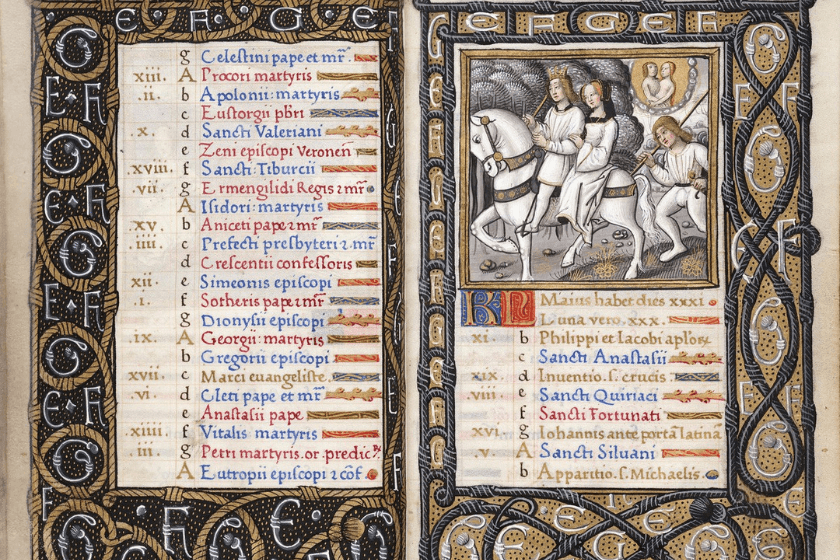 g Celestini pape et mr̃.
xiii. A Procori martyris
.ii. b Apolonii: martyris
c Eustorgii pb̃ri
.x. d Sancti Valeriani
e Zeni episcopi Veronen̄
.xviii. f Sancti: Tiburcii
.vii. g Ermengilidi Regis ⁊ mr̃
A Isidori: martyris
xv b Aniceti pape ⁊ mr̃
.iiii. c Prefecti presbyteri ⁊ mr̃
d Crescentii confessoris
xii. e Simeonis episcopi
.i. f Sotheris pape ⁊ mr̃
g Dionysii episcopi
.ix. A Georgii: martyris
b Gregorii episcopi
xvii c Marci euangeliste
.vi. d Cleti pape et mr̃
e Anastasii pape
xiiii. f Vitalis martyris
.iii. g Petri martyris. or. predic
A Eutropii episcopi ⁊ cōf.
KL Maius habet dies xxxi
Luna vero. xxx.
xi. b Philippi et Iacobi aplorꝝ
c Sancti Anastasii
xix. d Inuentio. s. crucis
.viii. e Sancti Quiriaci
f Sancti Fortunati
xvi. g Iohannis ante portā latinā
.v. A Sancti Siluani
b Apparitio. s. Michaelis.